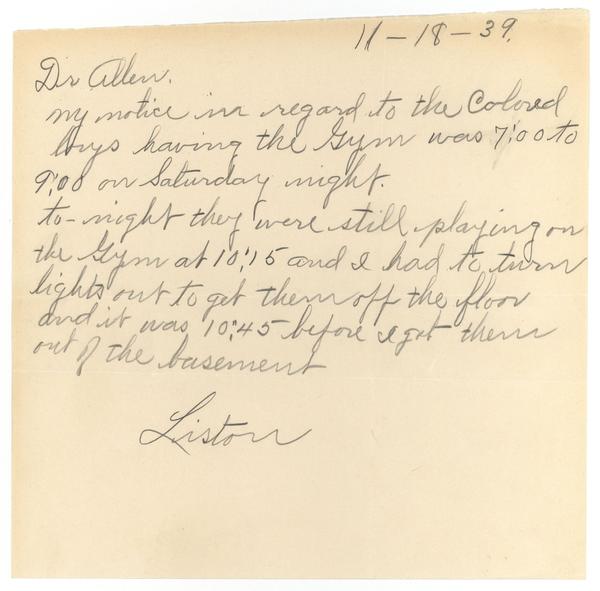 11-18-39.
Dr Allen.
my notice in regard to the Colored
boys having the Gym was 7:00 to
9:00 on Saturday night.
to-night they were still playing on
the Gym at 10:15 and I had to turn
lights out to get them off the floor
and it was 10:45 before I got them
out of the basement
Liston